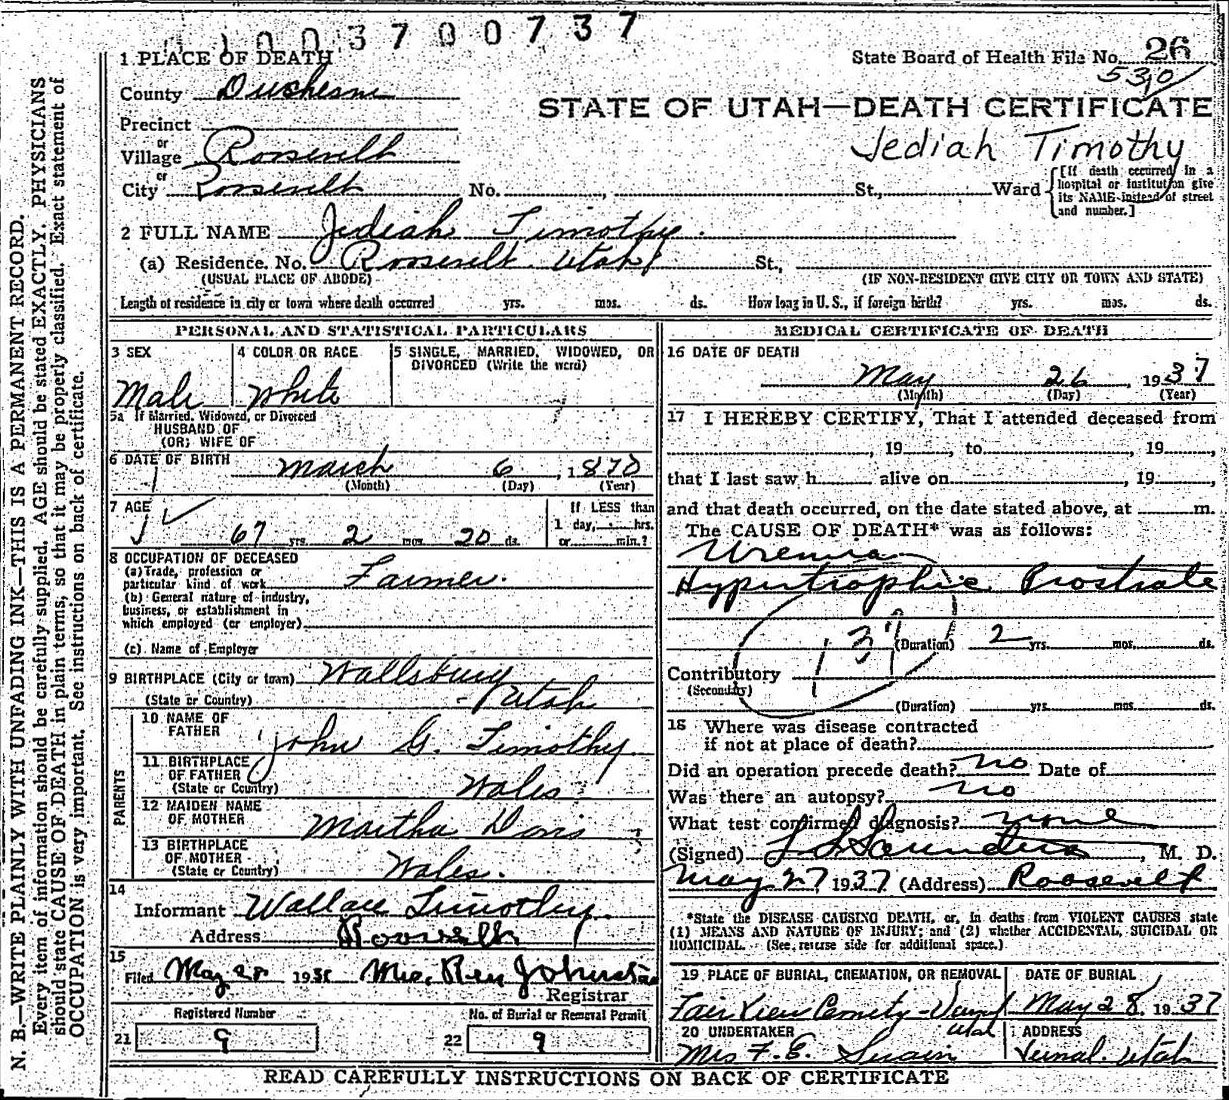 1003700737
1 PLACE OF DEATH
State Board of Health File No. 26
530
County Duchesne
STATE OF UTAH—DEATH CERTIFICATE
Precinct
Jediah Timothy
or
Village Roosevelt
or
City Roosevelt No. St, Ward
[If death occurred in a
hospital or institution give
its NAME instead of street
and number.]
2 FULL NAME Jediah Timothy.
(a) Residence. No. Roosevelt Utah St,
(USUAL PLACE OF ABODE) (IF NON-RESIDENT GIVE CITY OR TOWN AND STATE)
Length of residence in city or town where death occurred yrs. mos. ds. How long in U. S., if foreign birth? yrs. mos. ds.
PERSONAL AND STATISTICAL PARTICULARS
3 SEX
Male
4 COLOR OR RACE
White
5 SINGLE, MARRIED, WIDOWED, OR
DIVORCED (Write the word)
5a If Married, Widowed, or Divorced
HUSBAND OF
(OR) WIFE OF
6 DATE OF BIRTH March 6, 1870
(Month) (Day) (Year)
7 AGE
67 yrs. 2 mos. 20 ds.
If LESS than
1 day, hrs.
or min.?
8 OCCUPATION OF DECEASED
(a) Trade, profession or
particular kind of work Farmer.
(b) General nature of industry,
business, or establishment in
which employed (or employer)
(c) Name of Employer
9 BIRTHPLACE (City or town) Wallsburg
(State or Country) - Utah
PARENTS
10 NAME OF
FATHER John G. Timothy.
11 BIRTHPLACE
OF FATHER
(State or Country) Wales
12 MAIDEN NAME
OF MOTHER Martha Davis
13 BIRTHPLACE
OF MOTHER
(State or Country) Wales.
14
Informant Wallace Timothy.
Address Roosevelt
15
Filed May 28 193 Mrs. Johnston
Registrar
Registered Number No. of Burial or Removal Permit
21 9 22 9
MEDICAL CERTIFICATE OF DEATH
16 DATE OF DEATH
May 26, 1937
(Month) (Day) (Year)
17 I HEREBY CERTIFY, That I attended deceased from
, 19 , to , 19 ,
that I last saw h alive on , 19 ,
and that death occurred, on the date stated above, at m.
The CAUSE OF DEATH* was as follows:
Uremia
Hypertrophic Prostrate
137
(Duration) 2 yrs. mos. ds.
Contributory
(Secondary)
(Duration) yrs. mos. ds.
18 Where was disease contracted
if not at place of death?
Did an operation precede death? no Date of
Was there an autopsy? no
What test confirmed diagnosis? none
(Signed) Saunders, M. D.
May 27 1937 (Address) Roosevelt
*State the DISEASE CAUSING DEATH, or, in deaths from VIOLENT CAUSES state
(1) MEANS AND NATURE OF INJURY; and (2) whether ACCIDENTAL, SUICIDAL OR
HOMICIDAL. (See, reverse side for additional space.)
19 PLACE OF BURIAL, CREMATION, OR REMOVAL
DATE OF BURIAL
Fair View Utah
May 28, 1937
20 UNDERTAKER
ADDRESS
Mrs F. E. Swain
Vernal. Utah
READ CAREFULLY INSTRUCTIONS ON BACK OF CERTIFICATE
N. B.—WRITE PLAINLY WITH UNFADING INK—THIS IS A PERMANENT RECORD.
Every item of information should be carefully supplied. AGE should be stated EXACTLY. PHYSICIANS
should state CAUSE OF DEATH in plain terms, so that it may be properly classified. Exact statement of
OCCUPATION is very important. See instructions on back of certificate.